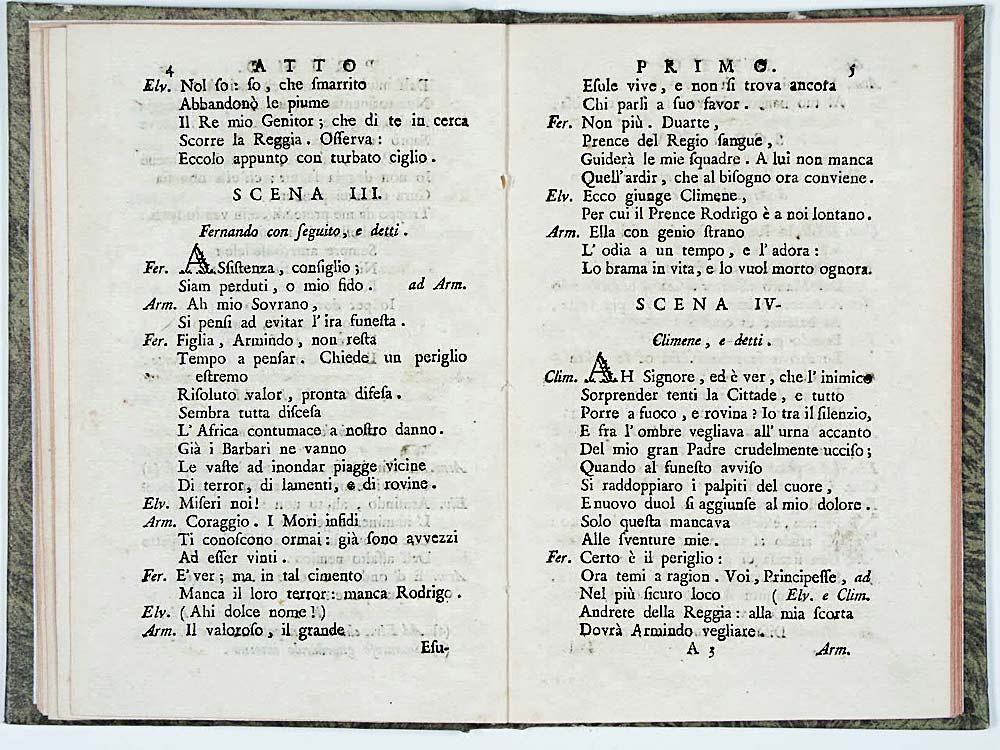 4 ATTO
Elv. Nol ſo: ſo, che ſmarrito
Abbandonò le piume
Il Re mio Genitor; che di te in cerca
Scorre la Reggia. Oſſerva:
Eccolo appunto con turbato ciglio.
SCENA III.
Fernando con ſeguito, e detti.
Fer. ASſiſtenza, conſiglio;
Siam perduti, o mio fido. ad Arm.
Arm. Ah mio Sovrano,
Si penſi ad evitar l'ira funeſta.
Fer. Figlia, Armindo, non reſta
Tempo a penſar. Chiede un periglio
eſtremo
Riſoluto valor, pronta difeſa.
Sembra tutta diſceſa
L'Africa contumace a noſtro danno.
Già i Barbari ne vanno
Le vaſte ad inondar piagge vicine
Di terror, di lamenti, e di rovine.
Elv. Miſeri noi!
Arm. Coraggio. I Mori infidi
Ti conoſcono ormai: già ſono avvezzi
Ad eſſer vinti.
Fer. E' ver; ma in tal cimento
Manca il loro terror: manca Rodrigo.
Elv. (Ahi dolce nome!)
Arm. Il valoroſo, il grande
Eſu-
PRIMO. 5
Eſule vive, e non ſi trova ancora
Chi parli a ſuo favor.
Fer. Non più. Duarte,
Prence del Regio ſangue,
Guiderà le mie ſquadre. A lui non manca
Quell'ardir, che al biſogno ora conviene.
Elv. Ecco giunge Climene,
Per cui il Prence Rodrigo è a noi lontano.
Arm. Ella con genio ſtrano
L'odia a un tempo, e l'adora:
Lo brama in vita, e lo vuol morto ognora.
SCENA IV-
Climene, e detti.
Clim. AH Signore, ed è ver, che l'inimico
Sorprender tenti la Cittade, e tutto
Porre a fuoco, e rovina? Io tra il ſilenzio,
E fra l'ombre vegliava all'urna accanto
Del mio gran Padre crudelmente ucciſo;
Quando al funeſto avviſo
Si raddoppiaro i palpiti del cuore,
E nuovo duol ſi aggiunſe al mio dolore.
Solo queſta mancava
Alle ſventure mie.
Fer. Certo è il periglio:
Ora temi a ragion. Voi, Principeſſe, ad
Nel più ſicuro loco (Elv. e Clim.
Andrete della Reggia: alla mia ſcorta
Dovrà Armindo vegliare.
A 3 Arm.